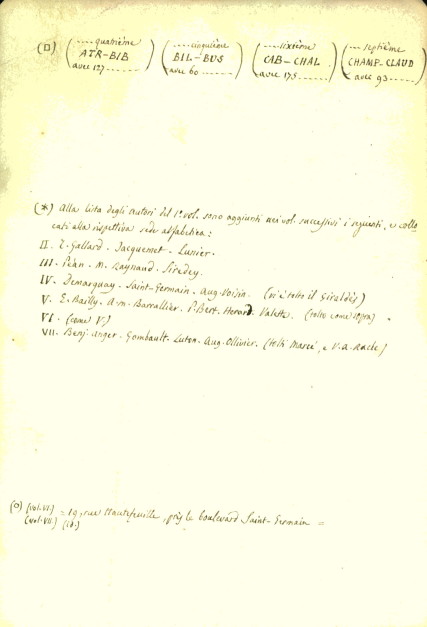 (□) (----quatrième) (----cinquième) (----sixième) (---septième)
ATR-BIB BIL-BUS CAB-CHAL CHAMP-CLAUD
avec 127........ avec 60........ avec 175........ avec 93.....
(*) Alla lista degli Autori del 1º vol. sono aggiunti nei vol. successivi i seguenti, e collo
cati alla rispettiva sede alfabetica:
II. T. Gallard. Jacquemet. Lunier.
III. Péan. M. Raynaud. Siredey.
IV. Demarquay. Saint-Germain. Aug. Voisin. (vi è tolto il Giraldès)
V. E. Bailly. Am. Barrallier. P. Bert. Herard. Valette. (tolto come sopra)
VI. (come V.)
VII. Benj. Anger. Gombault. Luton. Aug. Ollivier. (tolti Marcé, e V. A. Racle)
(O) (vol. VI.) = 19, rue Hautefeuille, près le boulevard Saint-Germain =
(vol. VII.) (id.)